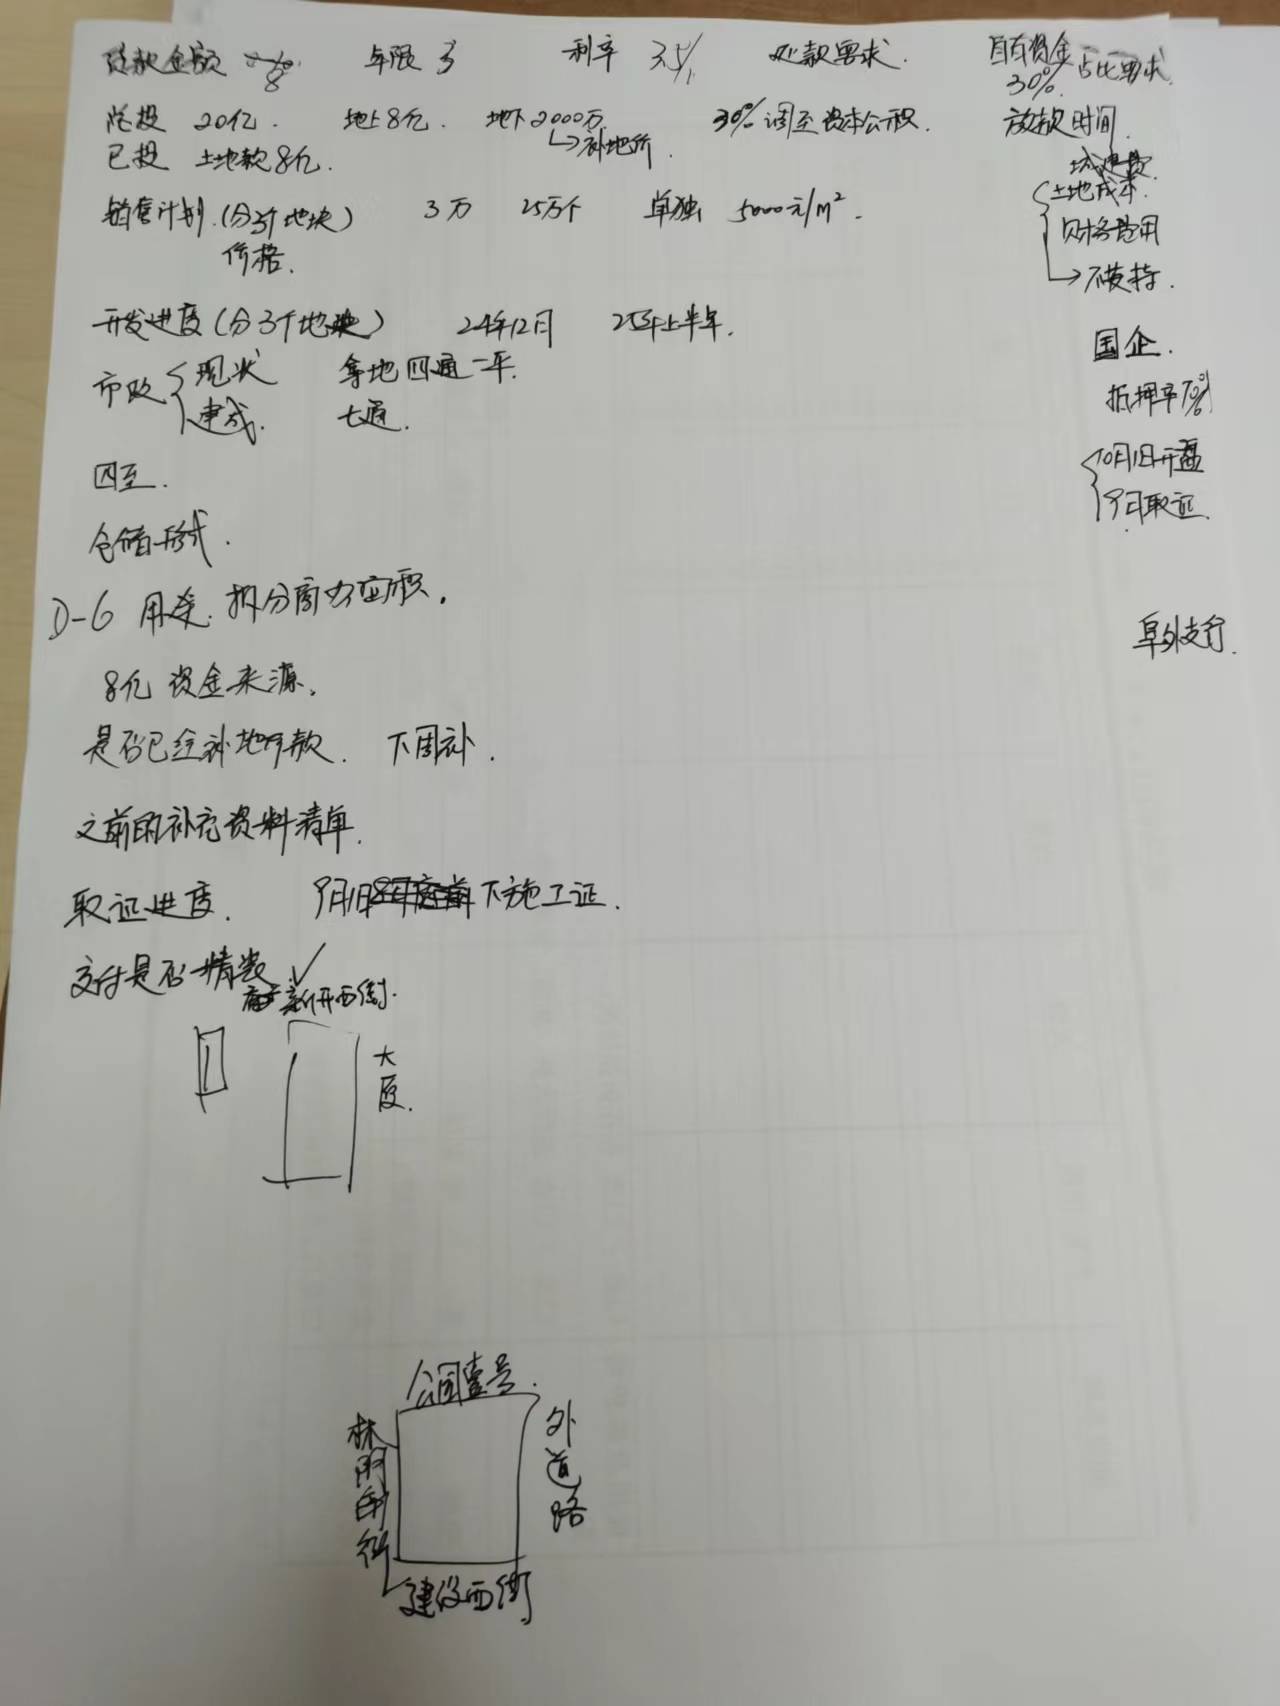 贷款金额 8 年限 3 利率 3.5% 还款要求. 自有资金 占比要求.
30%.
总投 20亿. 地上8亿. 地下2000万 30%调至资本公积. 放款时间.
↳补地价.
已投 土地款8亿.
销售计划.(分3个地块) 3万 25万/个 单独 5000元/m². 土地成本.
价格. 财务费用
→不支持.
开发进度(分3个地块) 24年12月 25年上半年.
国企.
市政 现状 拿地四通一平.
建成. 七通. 抵押率70%
四至. 10月1日开盘
9月取证.
仓储形式.
D-6 用途. 拆分商办面积.
阜外支行.
8亿 资金来源.
是否已经补地价款. 下周补.
之前的补充资料清单.
取证进度. 9月1日前下施工证.
交付是否精装 ✓
新开西街.
大厦.
公园壹号.
林荫街
外道路
建设西街